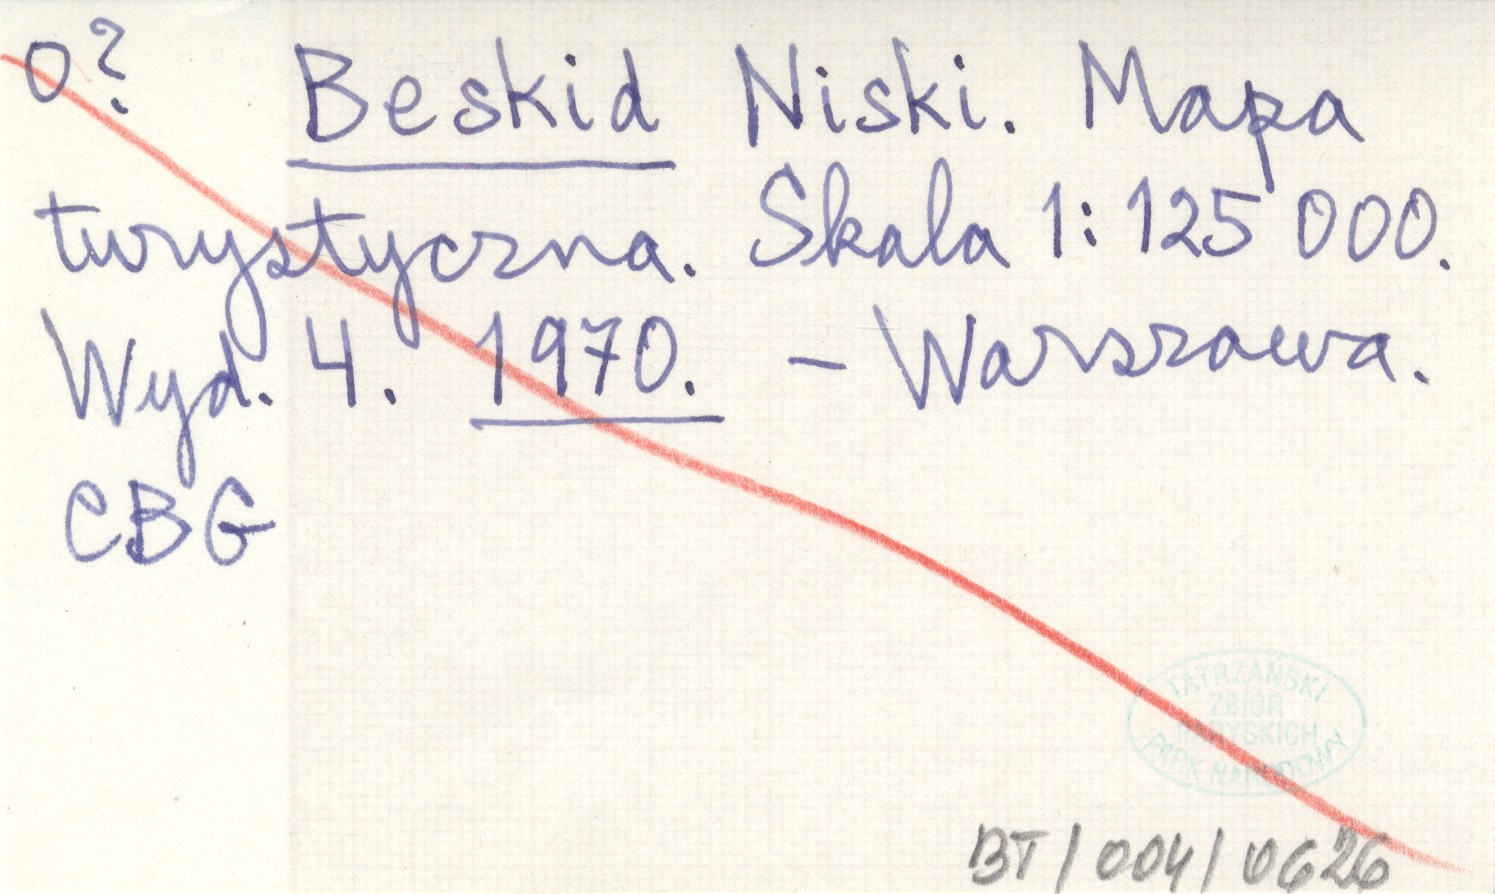 o? Beskid Niski. Mapa
turystyczna. Skala 1:125 000.
Wyd. 4. 1970. – Warszawa.
CBG
TATRZAŃSKI
ZBIÓR
PARYSKICH
PARK NARODOWY
BT/004/0626